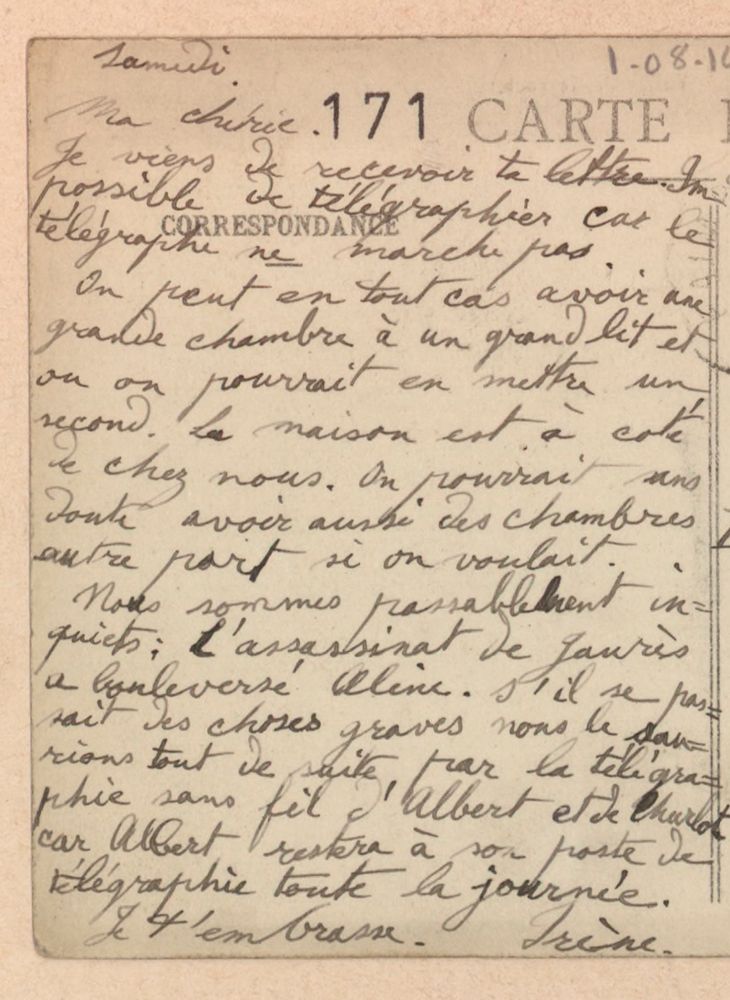 Samedi.
1-08-14
Ma chérie.
171
CARTE
Je viens de recevoir ta lettre. Im-
possible de télégraphier car le
CORRESPONDANCE
télégraphe ne marche pas.
On peut en tout cas avoir une
grande chambre à un grand lit et
ou on pourrait en mettre un
second. La maison est à coté
de chez nous. On pourrait sans
doute avoir aussi des chambres
autre part si on voulait.
Nous sommes passablement in=
quiets; L'assassinat de Jaurès
a bouleversé Aline. S'il se pas=
sait des choses graves nous le sau=
rions tout de suite par la télégra=
phie sans fil d'Albert et de Charlot
car Albert restera à son poste de
télégraphie toute la journée.
Je t'embrasse. Irène.